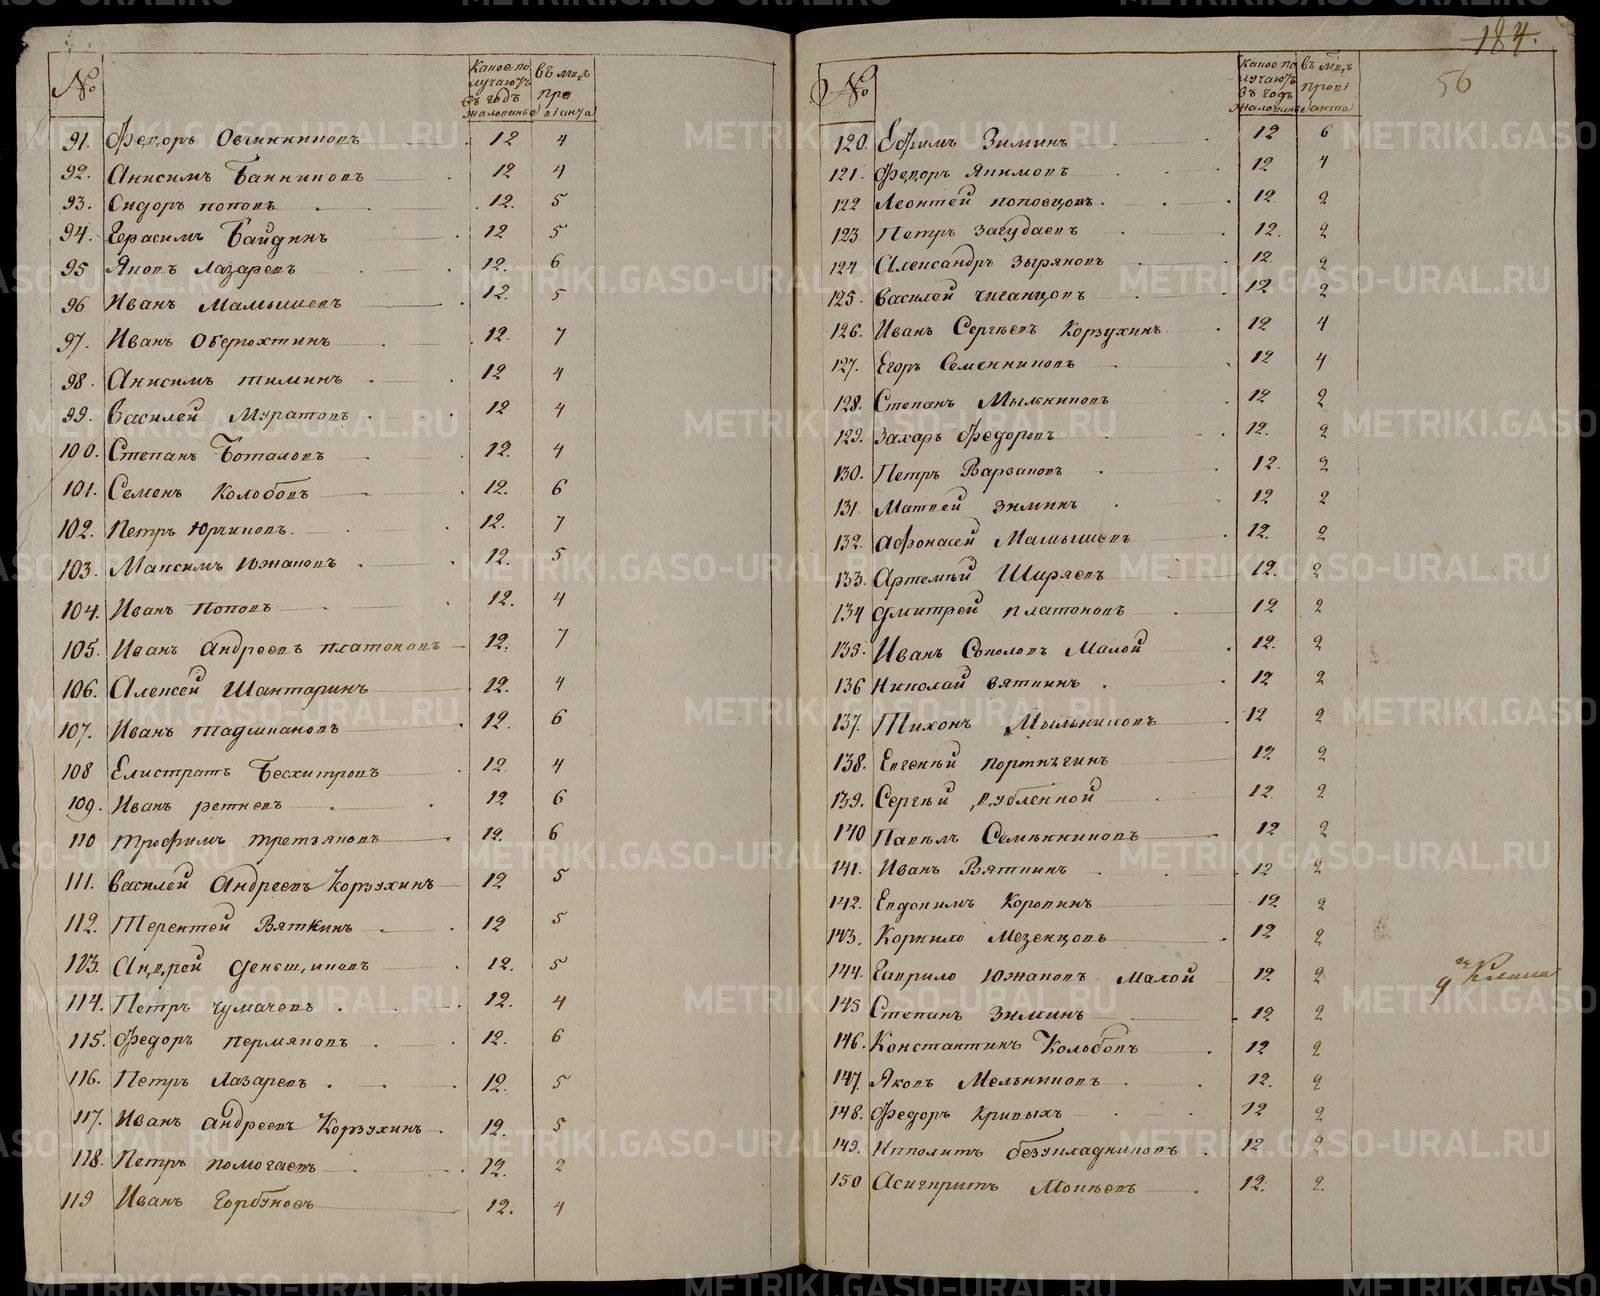 № Какое по лучаютъ въ годъ жалованье въ м-цъ про віанта
91. Федоръ Овчинниковъ 12 4
92. Анисимъ Банниковъ 12 4
93. Сидоръ Поповъ 12. 5
94. Герасимъ Байдинъ 12 5
95 Яковъ Лазаревъ 12. 6
96 Иванъ Мамышевъ 12. 5
97. Иванъ Оберюхтинъ 12. 7
98. Анисимъ Тиминъ 12 4
99. Василей Муратовъ 12 4
100. Степанъ Боталовъ 12. 4
101. Семенъ Колобовъ 12. 6
102. Петръ Юрчиковъ. 12. 7
103. Максимъ Южаковъ 12. 5
104. Иванъ Поповъ 12. 4
105. Иванъ Андреевъ Платоновъ 12. 7
106. Алексей Шантаринъ 12. 4
107. Иванъ Тадмиановъ 12. 6
108 Елистратъ Бесхитровъ 12 4
109. Иванъ Ретневъ 12 6
110 Трофимъ Третьяковъ 12. 6
111. Василей Андреевъ Корзухинъ 12 5
112. Терентей Вяткинъ 12 5
113. Андрей Деньщиковъ 12. 5
114. Петръ Чумачевъ 12. 4
115. Федоръ Пермяковъ 12. 6
116. Петръ Лазаревъ 12. 5
117. Иванъ Андреевъ Корзухинъ 12. 5
118. Петръ Помогаевъ 12. 2
119 Иванъ Горбуновъ 12. 4
184.
56
№ Какое по лучаютъ въ годъ жалованье въ м-цъ прови анта
120. Ефимъ Зиминъ 12 6
121. Федоръ Якимовъ 12 4
122 Леонтей Поповцовъ. 12 2
123. Петръ Загудаевъ 12. 2
124 Александръ Зыряновъ 12 2
125. Василей Чиганцовъ 12 2
126. Иванъ Сергѣевъ Корзухинъ 12 4
127. Егоръ Семенниковъ 12 4
128. Степанъ Мыльниковъ 12 2
129. Захаръ Федоровъ 12. 2
130. Петръ Варваковъ 12. 2
131. Матвей Зиминъ 12 2
132. Афонасей Мамышевъ 12. 2
133. Артемѣй Ширяевъ 12. 2
134 Дмитрей Платоновъ 12 2
135. Иванъ Соколовъ Малой 12. 2
136 Николай Вяткинъ 12 2
137. Тихонъ Мыльниковъ 12 2
138. Евгенѣй Портнягинъ 12 2
139. Сергѣй Дубленной 12 2
140 Павелъ Семянниковъ 12 2
141. Иванъ Вяткинъ 12 2
142. Евдокимъ Коровинъ 12 2
143. Корнило Мезенцовъ 12 2
144. Гаврило Южаковъ Малой 12 2
145 Степанъ Зиминъ 12 2
146. Константинъ Колобовъ 12 2
147. Яковъ Мельниковъ 12. 2
148. Федоръ Кривыхъ 12 2
149. Ипполитъ Безукладниковъ 12 2
150 Асигкритъ Мокѣевъ 12. 2
METRIKI.GASO-URAL.RU